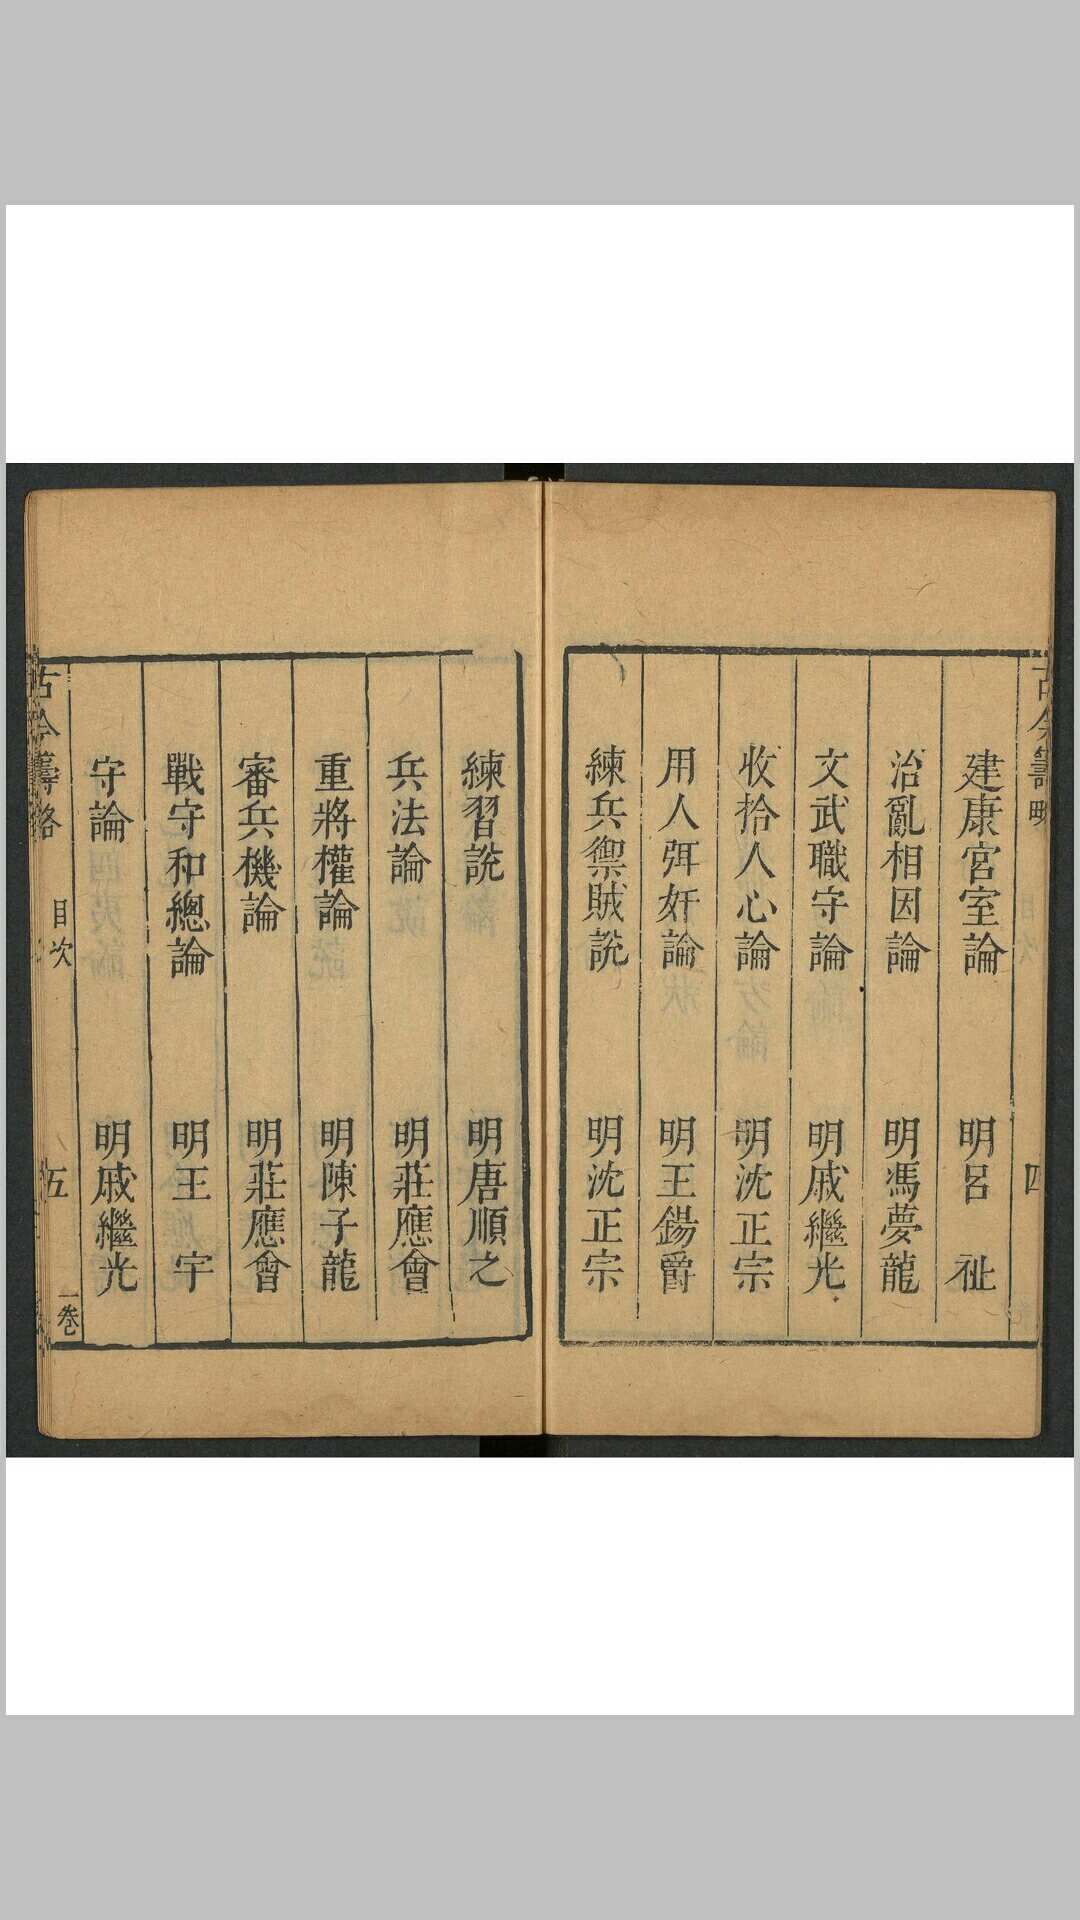 古今籌略
目次
四
建康宮室論 明呂祉
治亂相因論 明馮夢龍
文武職守論 明戚繼光
收拾人心論 明沈正宗
用人弭奸論 明王錫爵
練兵禦賊說 明沈正宗
練習說 明唐順之
兵法論 明莊應會
重將權論 明陳子龍
審兵機論 明莊應會
戰守和總論 明王宇
守論 明戚繼光
古今籌略
目次
五
一卷